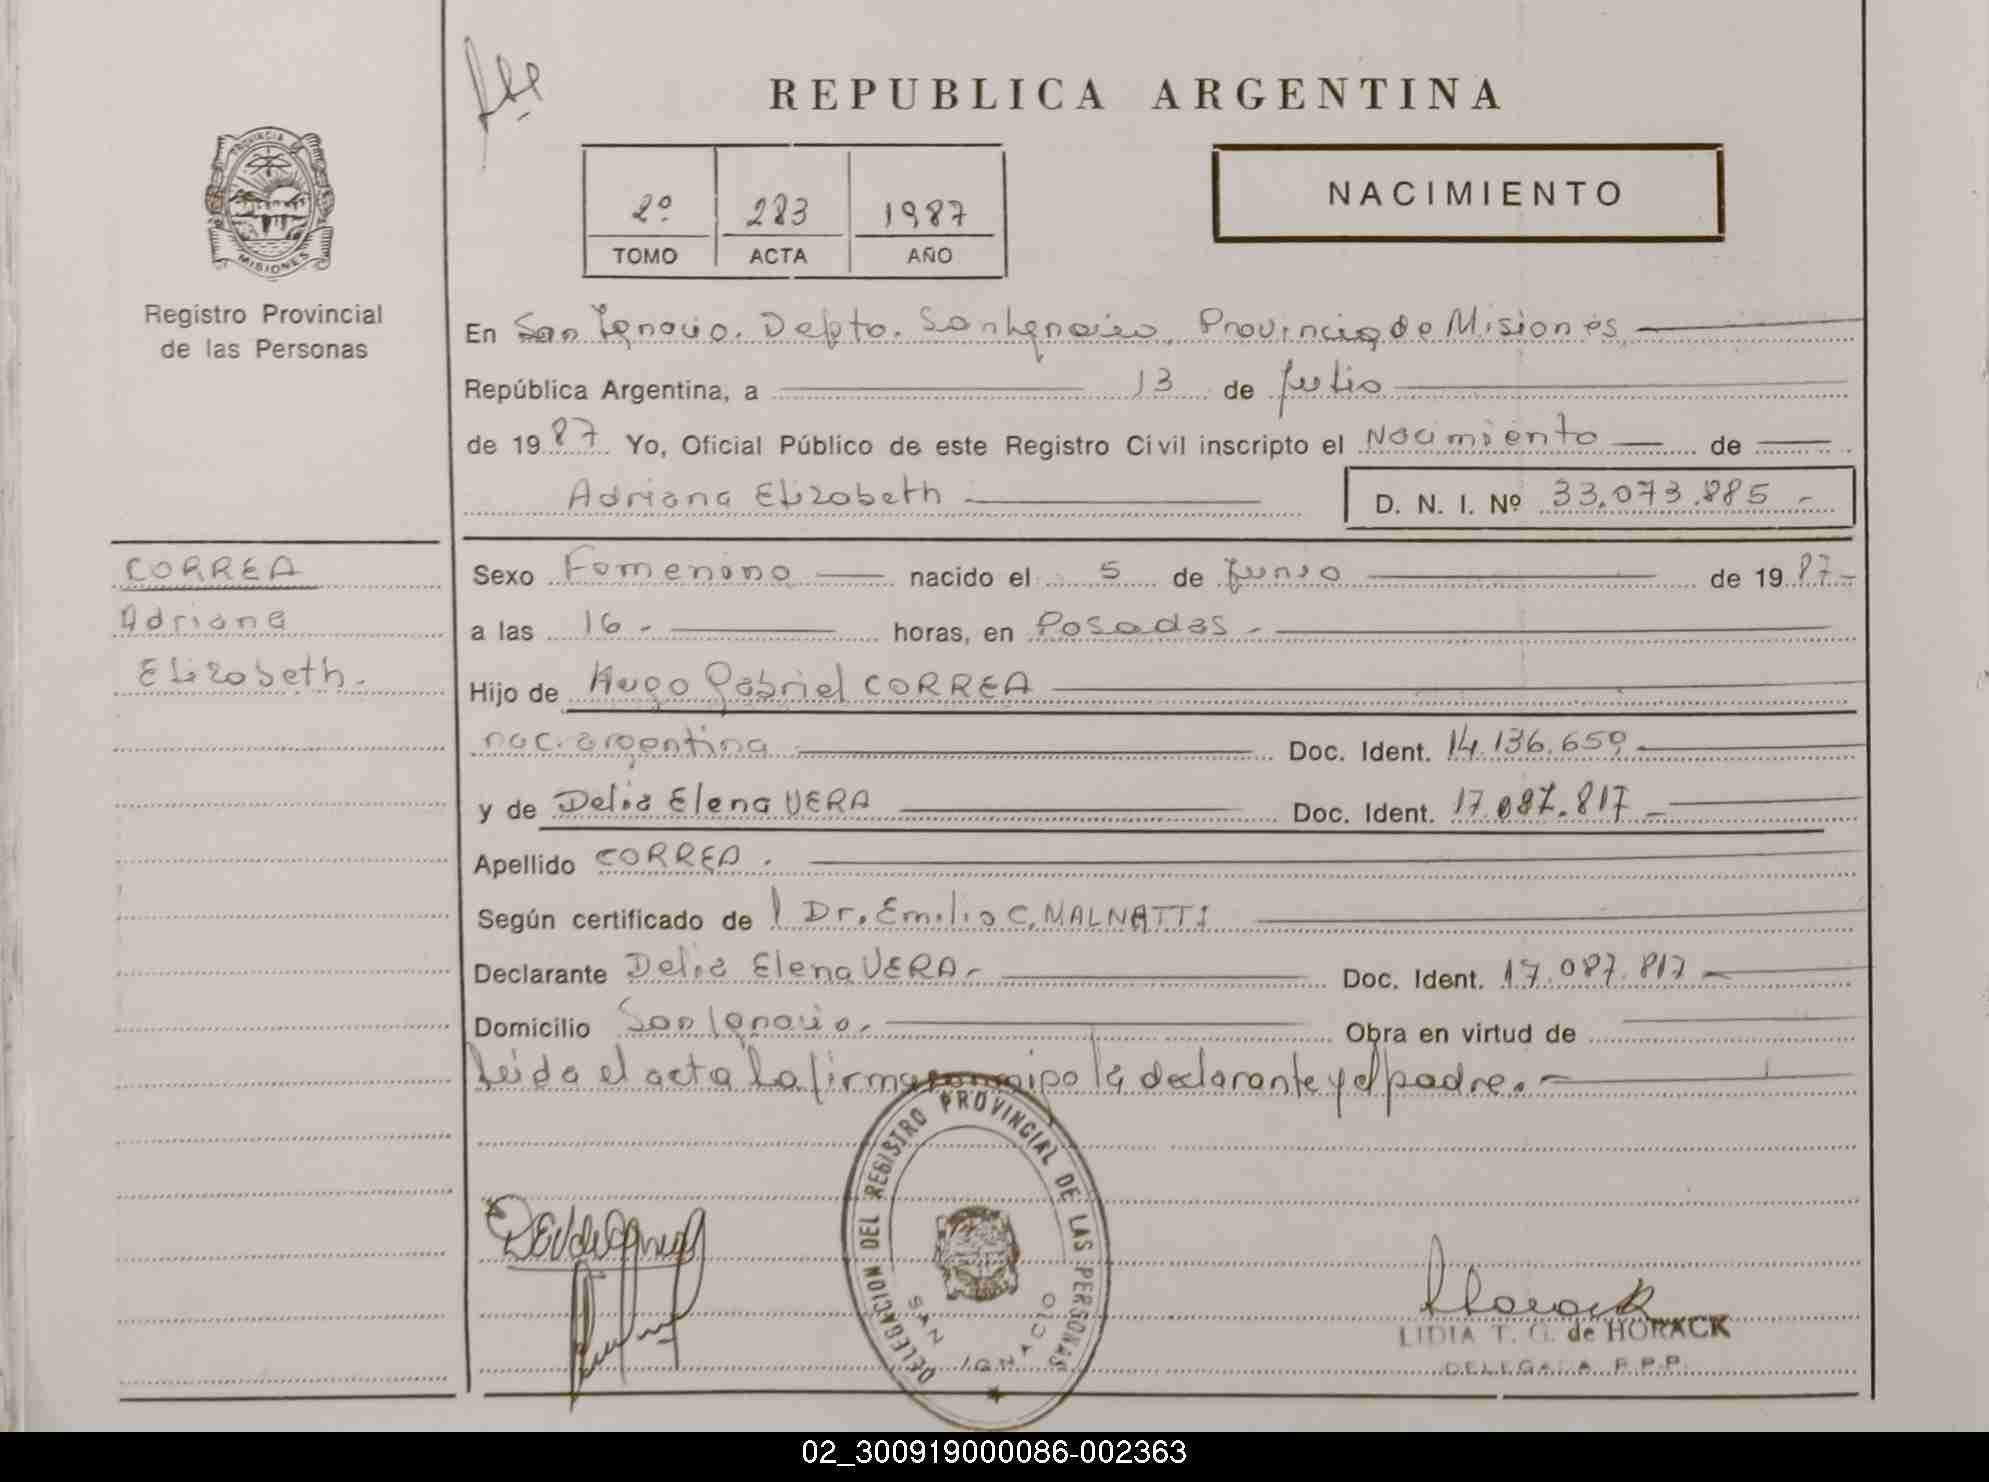 REPUBLICA ARGENTINA
PROVINCIA DE
MISIONES
Registro Provincial
de las Personas
2º 283 1987
TOMO ACTA AÑO
NACIMIENTO
En San Ignacio. Depto. San Ignacio, Provincia de Misiones
República Argentina, a 13 de julio
de 1987 Yo, Oficial Público de este Registro Civil inscripto el Nacimiento de
Adriana Elizabeth D. N. I. Nº 33.073.885 -
CORREA
Adriana
Elizabeth.
Sexo Femenino nacido el 5 de Junio de 1987-
a las 16 - horas, en Posadas -
Hijo de Hugo Gabriel CORREA
nac. argentina Doc. Ident. 14.136.659
y de Delia Elena VERA Doc. Ident. 17.087.817 -
Apellido CORREA.
Según certificado de l Dr. Emilio C. MALNATTI
Declarante Delia Elena VERA- Doc. Ident. 17.087.817 -
Domicilio San Ignacio. Obra en virtud de
Leida el acta la firma conmigo la declarante y el padre.-
DELEGACION DEL REGISTRO PROVINCIAL DE LAS PERSONAS
SAN IGNACIO
LIDIA T. G. de HORACK
DELEGADA R.P.P.
02_300919000086-002363